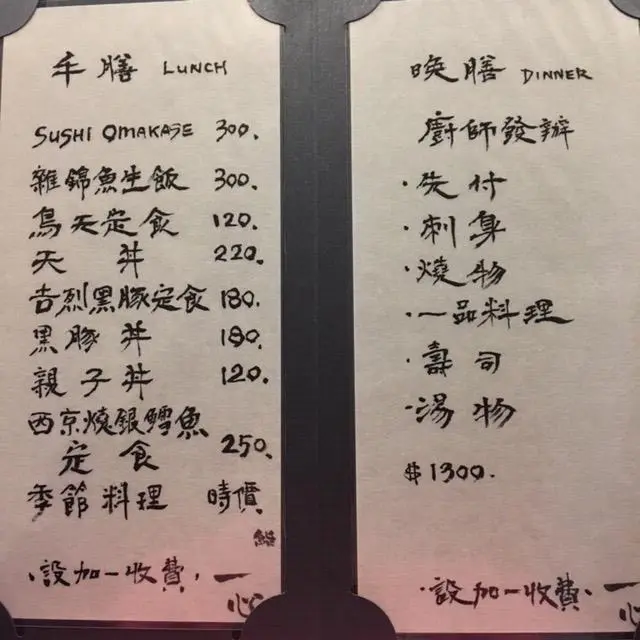 午膳 LUNCH
SUSHI OMAKASE 300.
雜錦魚生飯 300.
烏天定食 120.
天丼 220.
吉烈黑豚定食 180.
黑豚丼 180.
親子丼 120.
西京燒銀鱈魚
定食 250.
季節料理 時價
·設加一收費·
一心
晚膳 DINNER
廚師發辦
·先付
·刺身
·燒物
·一品料理
·壽司
·湯物
$1300.
·設加一收費·
一心